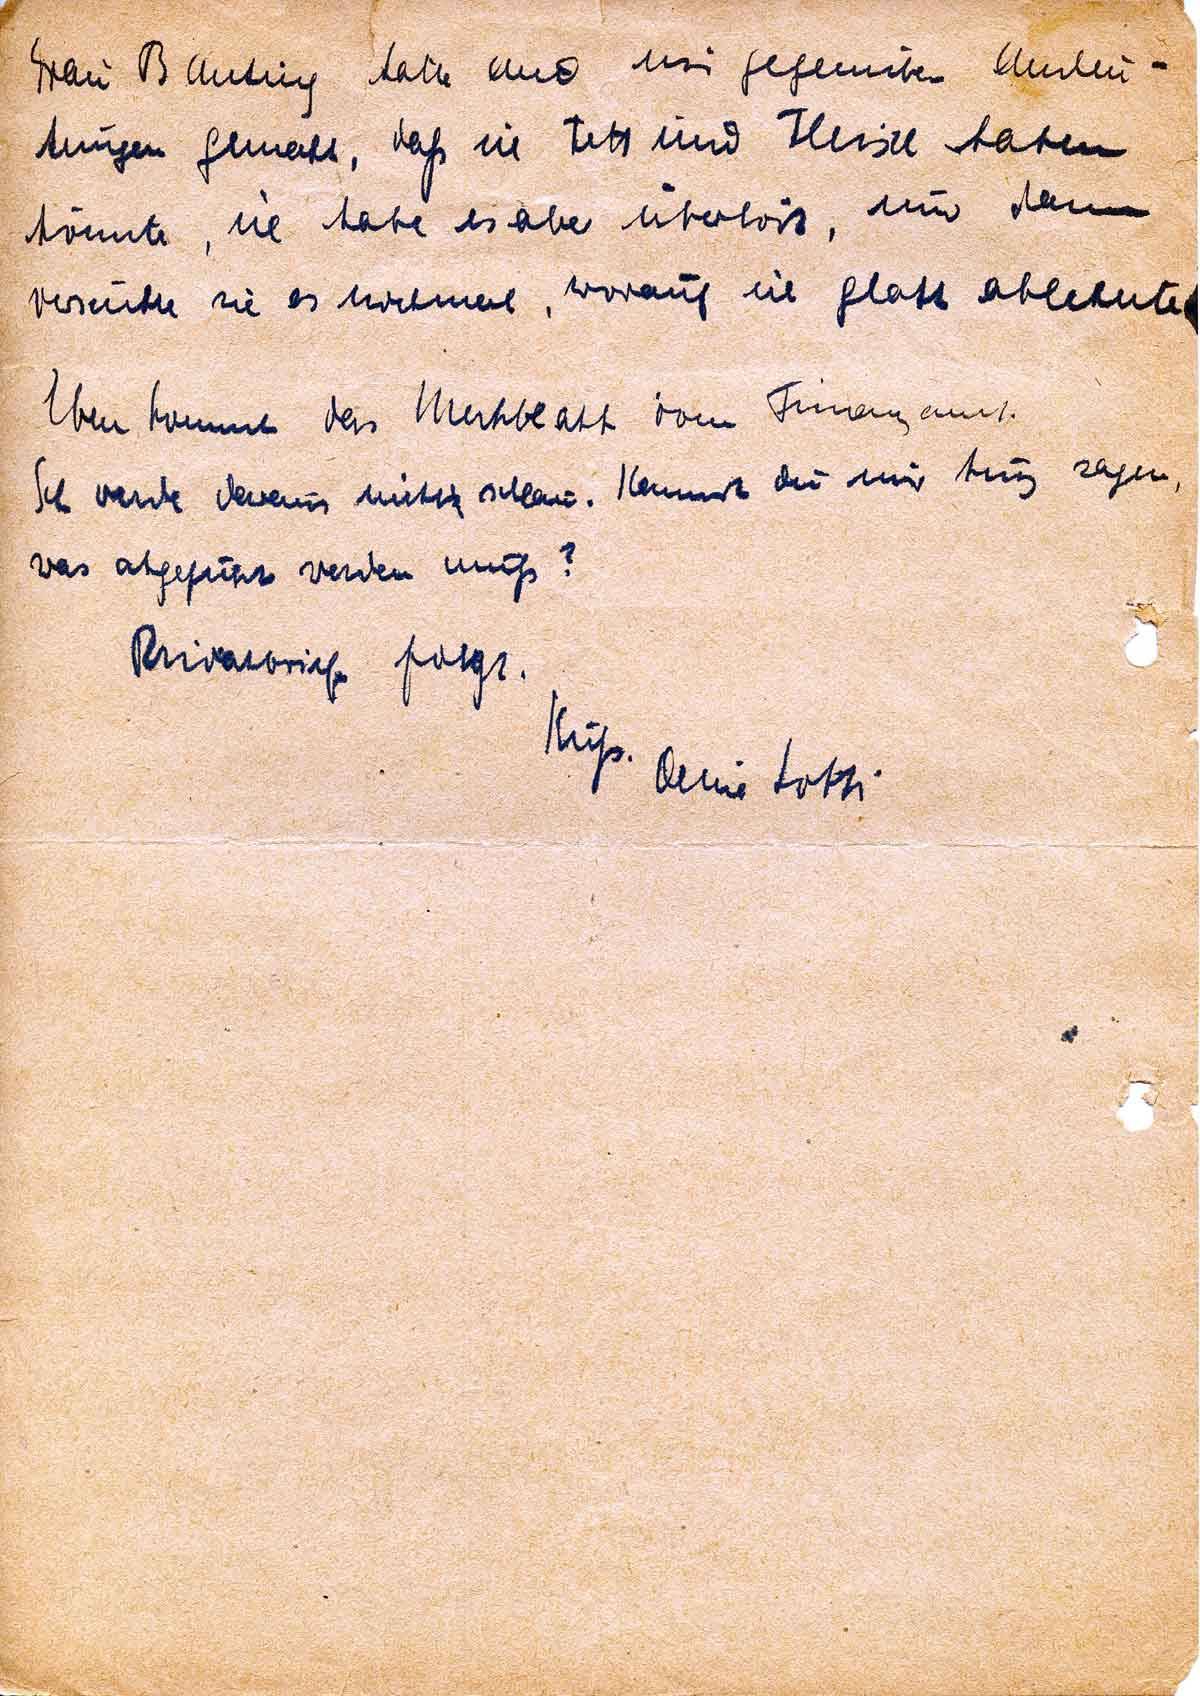 Frau B hatte auch mir gegenüber Andeu-
tungen gemacht, daß sie Fett und Fleisch haben
könnte, sie habe es aber überhört, und dann
versuchte sie es nochmal, worauf sie glatt ablehnte
Eben kommt das Merkblatt vom Finanzamt.
Ich werde daraus nicht schlau. Kannst du mir kurz sagen,
was abgeführt werden muß?
Privatbrief folgt.
Kuß. Deine Lotti